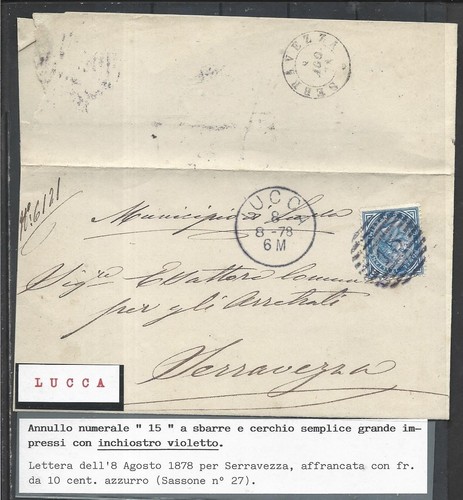 SERRAVEZZA
AGO
No. 6121
LUCCA
8
8 -78
6 M
Municipio di
Sigre Esattore Comu
per gli Arretrati
Serravezza
LUCCA
Annullo numerale " 15 " a sbarre e cerchio semplice grande im-
pressi con inchiostro violetto.
Lettera dell'8 Agosto 1878 per Serravezza, affrancata con fr.
da 10 cent. azzurro (Sassone n° 27).